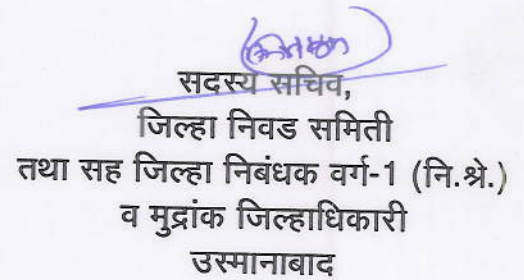 सदस्य सचिव,
जिल्हा निवड समिती
तथा सह जिल्हा निबंधक वर्ग-1 (नि.श्रे.)
व मुद्रांक जिल्हाधिकारी
उस्मानाबाद